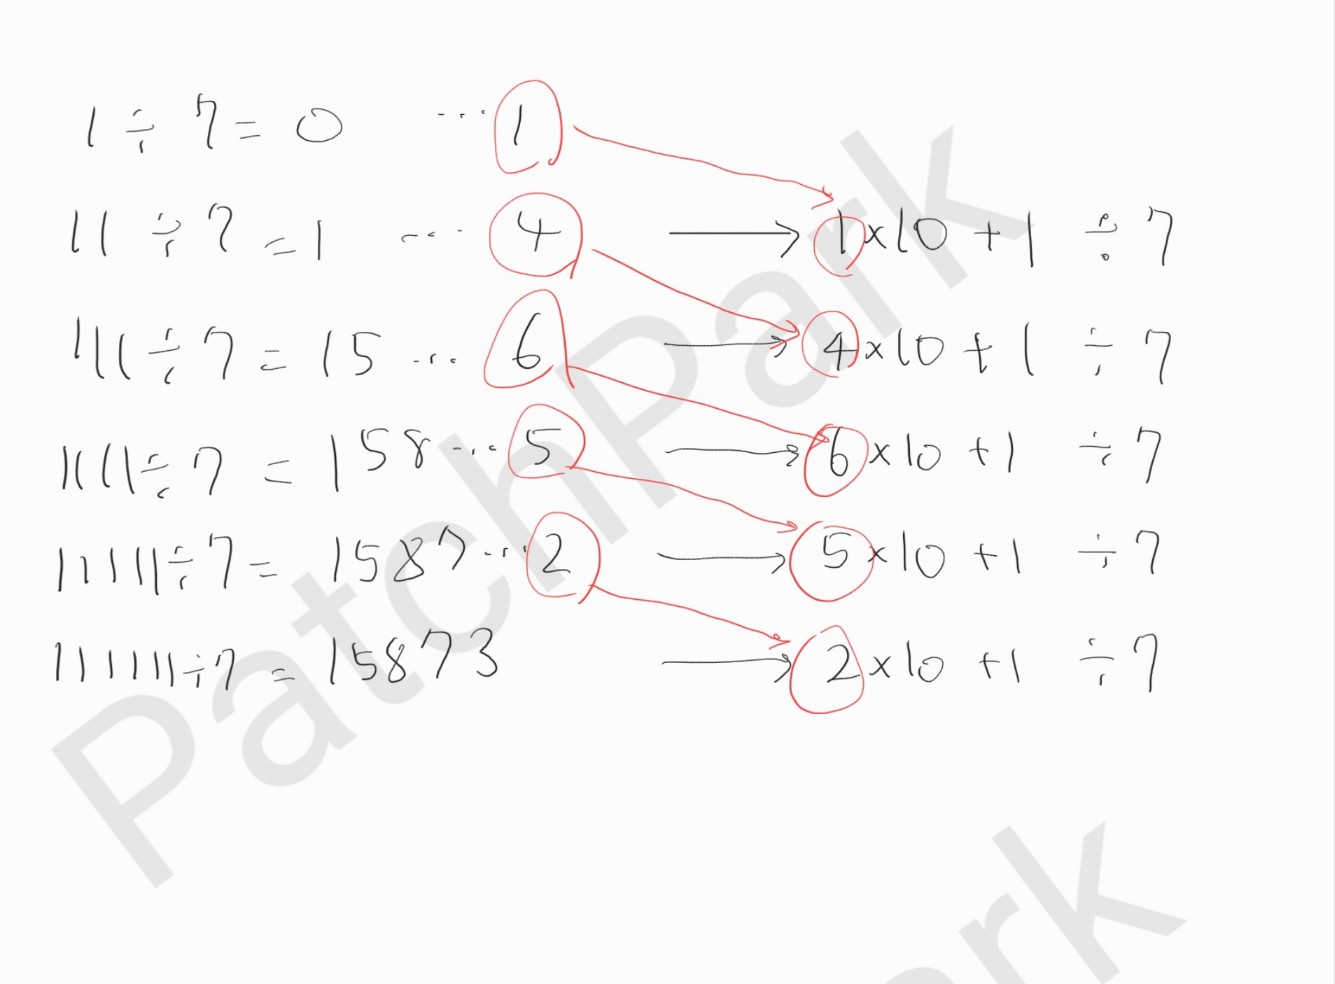 1 ÷ 7 = 0 ... 1
11 ÷ 7 = 1 ... 4 → 1×10 + 1 ÷ 7
111 ÷ 7 = 15 ... 6 → 4×10 + 1 ÷ 7
1111 ÷ 7 = 158 ... 5 → 6×10 + 1 ÷ 7
11111 ÷ 7 = 1587 ... 2 → 5×10 + 1 ÷ 7
111111 ÷ 7 = 15873 → 2×10 + 1 ÷ 7
PatchPark
ark